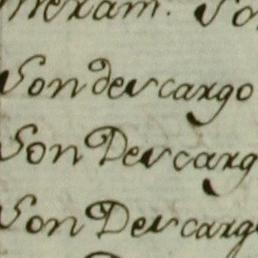 Son
Son descargo
Son Descarg
Son Descarg